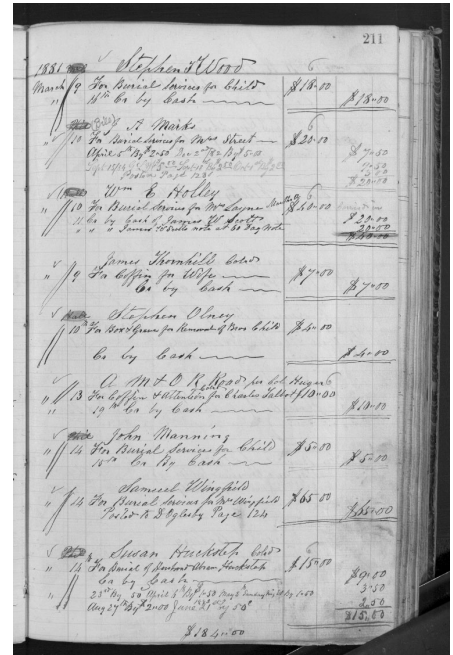 211
1881 Stephen T Wood
March 9 For Burial Services for Child $18.00
" 15th Cr by Cash $18.00
A Marks
" 10 For Burial Services for Mrs Street $20.00
April 5th By $7.50 $7.50
Posted Page 123 $20.00
Wm E Holley
" 10 For Burial Services for Mrs Layne $40.00
" 11 Cr by Cash of James W Scott $20.00
" " " James W Scotts note at 30 Day Note 20.00
$40.00
James Thornhill Cold
" 9 For Coffin for Wife $7.00
Cr by Cash $7.00
Stephen Olney
" 10th For Box & Grave for Removal of Bros Child $4.00
Cr by Cash $4.00
A M & O R Road per Col Huger
" 13 For Coffin & Attention for Charles Talbot $10.00
" 19th Cr by Cash $10.00
John Manning
" 14 For Burial Services for Child $5.00
15th Cr By Cash $5.00
Samuel Wingfield
" 14 For Burial Services for Mrs Wingfield $65.00
Posted to D Oglesby Page 124 $65.00
Susan Huckstep Cold
" 14 For Burial of Huckstep $15.00
Cr by Cash $9.00
" 23rd By 50 April 5th By $1.50 3.50
Aug 27th By $2.00 June 21st By 50 2.50
$15.00
$184.00